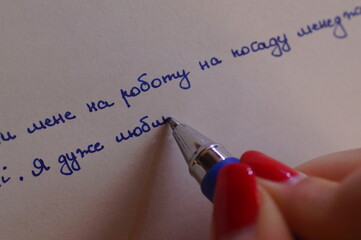 мене на роботу на посаду менедж
і. Я дуже люби